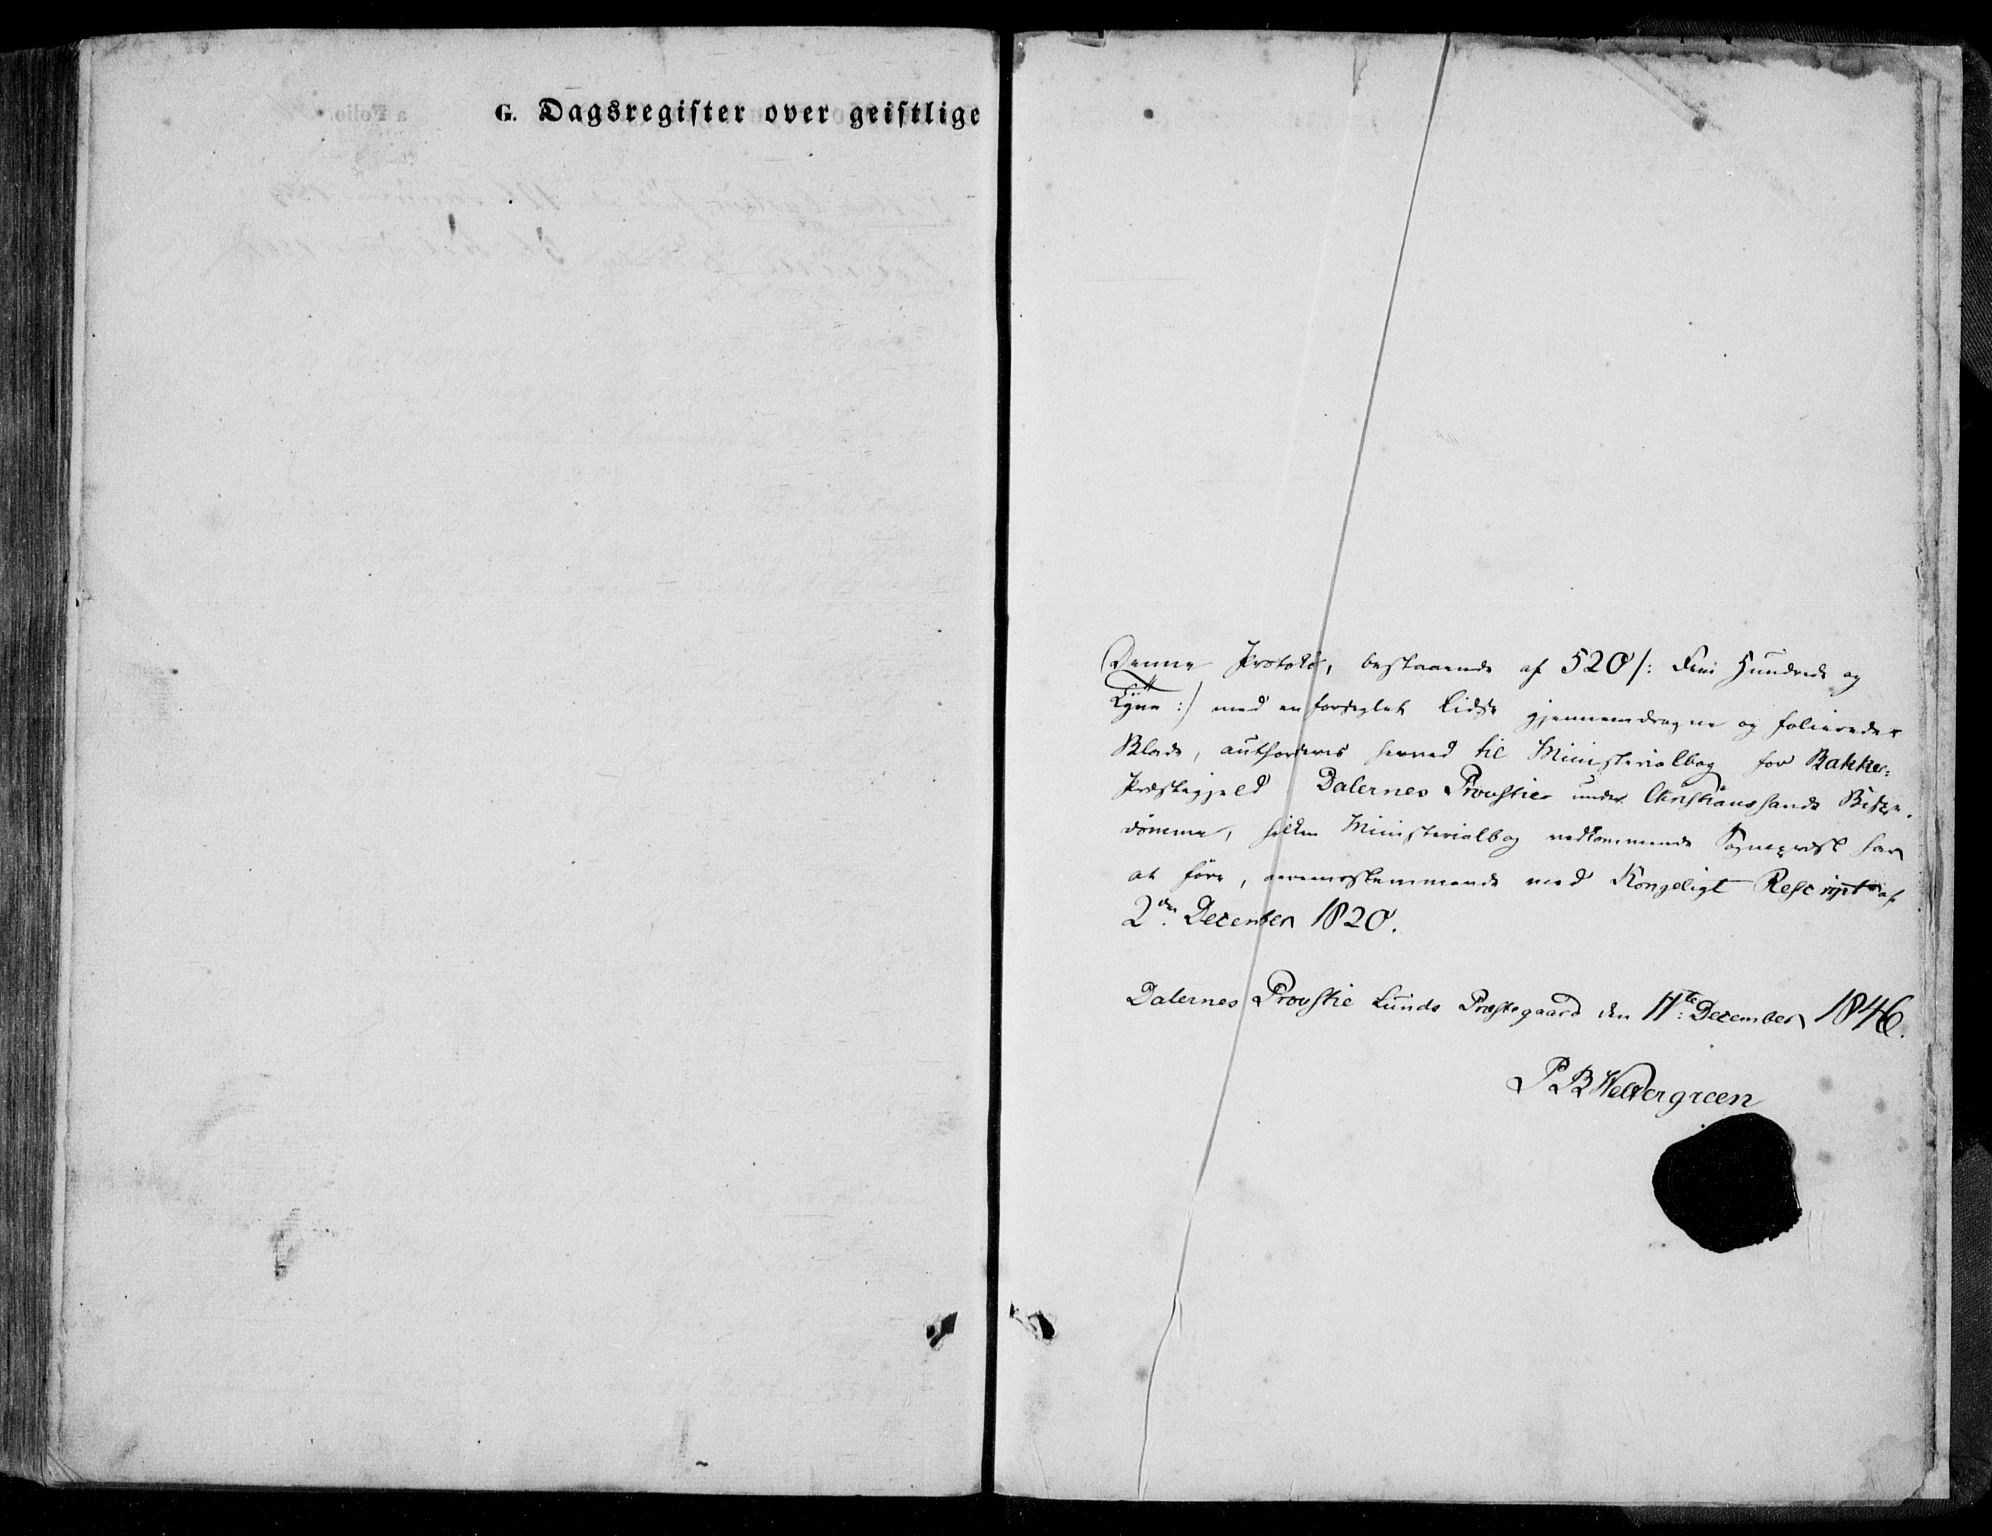 G. Dagsregister over geistlige
Denne Protokol, bestaaende af 520 /: Fem Hundrede og
Tyve :/ med en forseglet Lidse gjennemdragne og folierede
Blade, authoriseres herved til Ministerialbog for Bakke
Præstegjeld Dalernes Provstie under Christianssands Bispe-
dömme, hilken Ministerialbog vedkommende Sognepræst har
at före, overensstemmende med Kongeligt Rescript af
2den December 1820.
Dalernes Provstie Lunds Præstegaard den 11te December 1846.
P B Wettergreen